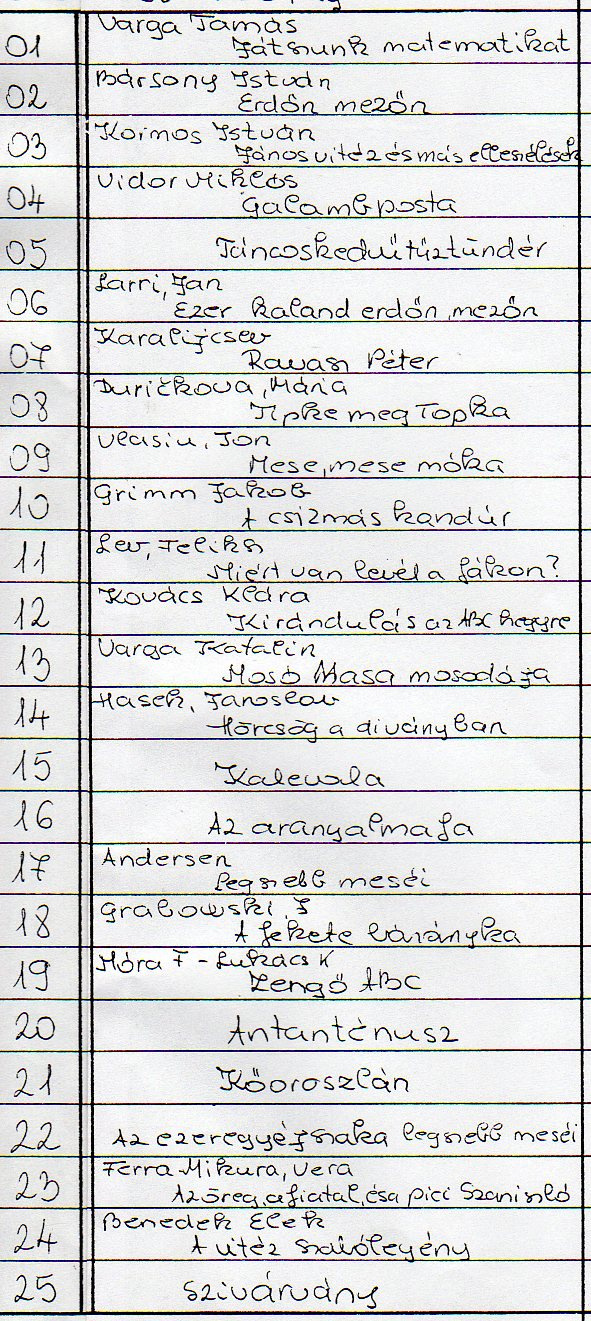 01 Varga Tamás
Játsunk matematikát
02 Bársony István
Erdőn mezőn
03 Kormos István
János vitéz és más elbeszélések
04 Vidor Miklós
Galambposta
05 Táncoskedvű tűztündér
06 Larri, Jan
Ezer kaland erdőn, mezőn
07 Karalijcsev
Ravasz Péter
08 Duričkova, Mária
Tipke meg Topka
09 Vlasiu, Ion
Mese, mese móka
10 Grimm Jakob
A csizmás kandúr
11 Lev, Feliksz
Miért van levél a fákon?
12 Kovács Klára
Kirándulás az ABC hegyre
13 Varga Katalin
Mosó Masa mosodája
14 Hasek, Jaroslav
Hörcsög a díványban
15 Kalevala
16 Az aranyalmafa
17 Andersen
legszebb meséi
18 Grabowski, J
A fekete bárányka
19 Móra F - Lukács K
Zengő ABC
20 Antanténusz
21 Kőoroszlán
22 Az ezeregyéjszaka legszebb meséi
23 Ferra-Mikura, Vera
Az öreg, a fiatal, és a pici Szaniszló
24 Benedek Elek
A vitéz szabólegény
25 Szivárvány